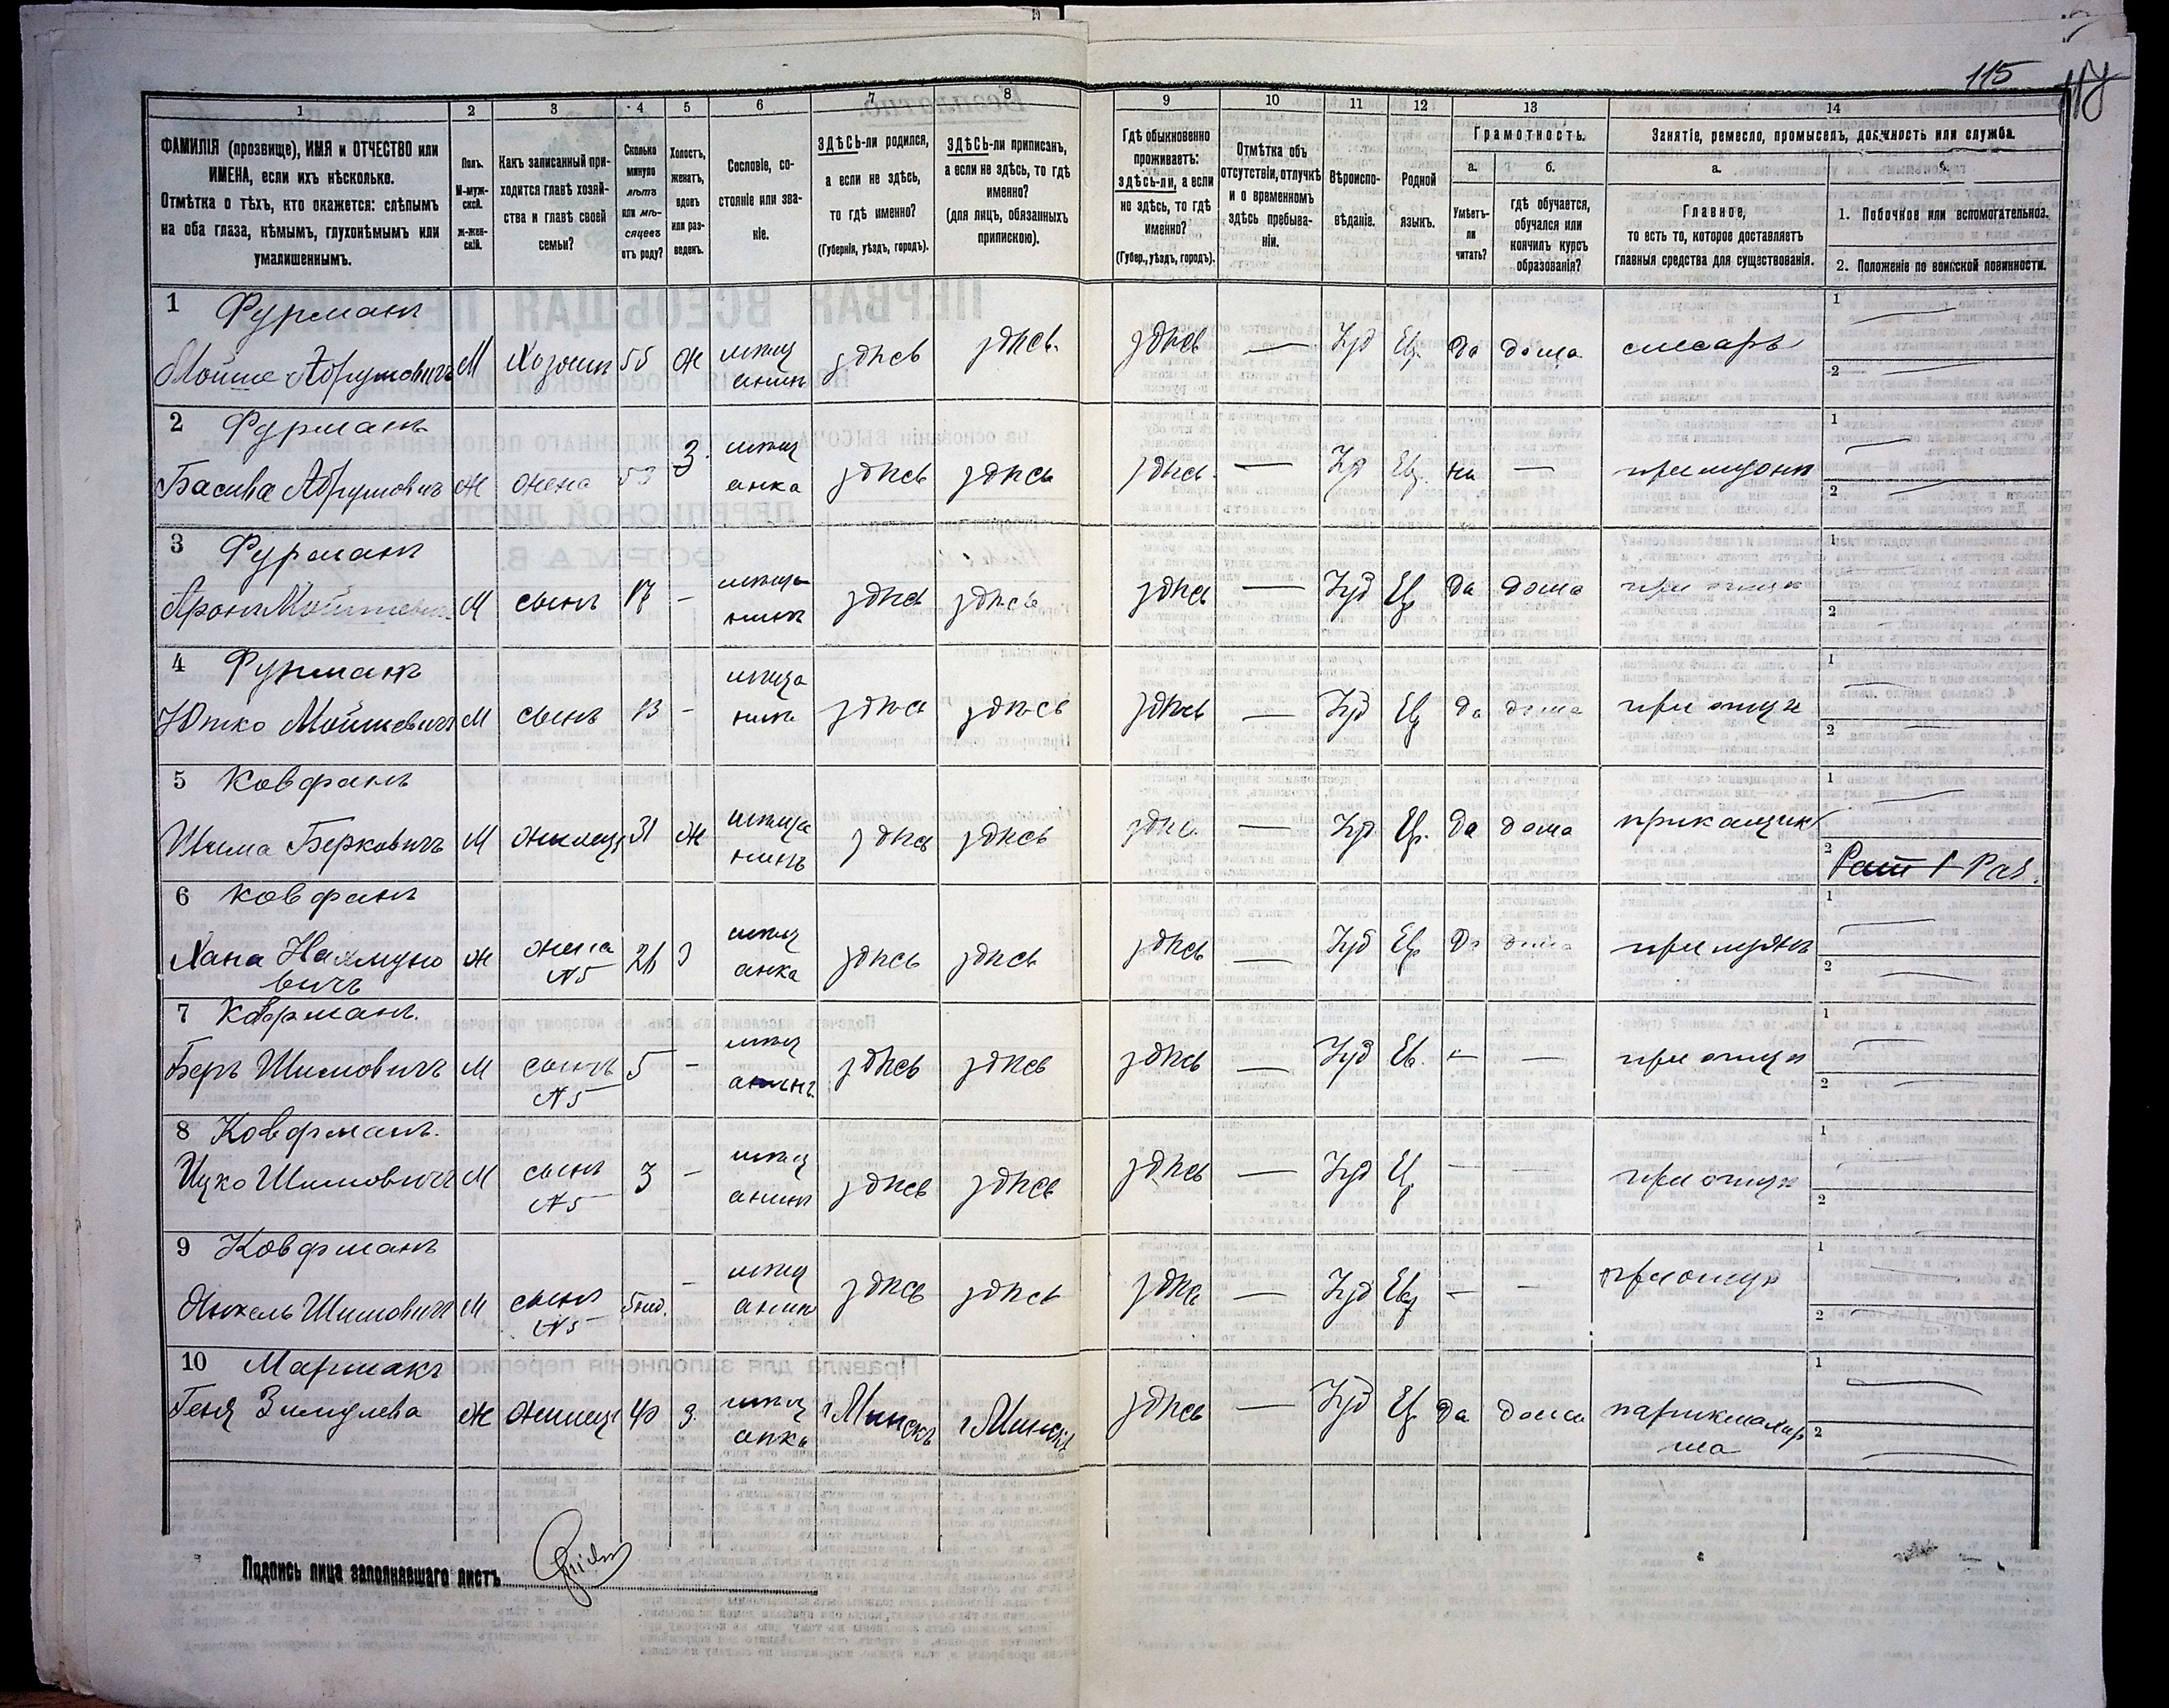 115
1 2 3 4 5 6 7 8 9 10 11 12 13 14
ФАМИЛІЯ (прозвище), ИМЯ и ОТЧЕСТВО или
ИМЕНА, если ихъ нѣсколько.
Отмѣтка о тѣхъ, кто окажется: слѣпымъ
на оба глаза, нѣмымъ, глухонѣмымъ или
умалишеннымъ.
Полъ.
М-муж-
ской.
Ж-жен-
скій.
Какъ записанный при-
ходится главѣ хозяй-
ства и главѣ своей
семьи?
Сколько
минуло
лѣтъ
или мѣ-
сяцевъ
отъ роду?
Холостъ,
женатъ,
вдовъ
или раз-
веденъ.
Сословіе, со-
стояніе или зва-
ніе.
ЗДѢСЬ-ли родился,
а если не здѣсь,
то гдѣ именно?
(Губернія, уѣздъ, городъ).
ЗДѢСЬ-ли приписанъ,
а если не здѣсь, то гдѣ
именно?
(для лицъ, обязанныхъ
припискою).
Гдѣ обыкновенно
проживаетъ:
здѣсь-ли, а если
не здѣсь, то гдѣ
именно?
(Губер., уѣздъ, городъ).
Отмѣтка объ
отсутствіи, отлучкѣ
и о временномъ
здѣсь пребыва-
ніи.
Вѣроиспо-
вѣданіе.
Родной
языкъ.
Грамотность.
а. б.
Умѣетъ-
ли
читать?
гдѣ обучается,
обучался или
кончилъ курсъ
образованія?
Занятіе, ремесло, промыселъ, должность или служба.
а. б.
Главное,
то есть то, которое доставляетъ
главныя средства для существованія.
1. Побочное или вспомогательное.
2. Положеніе по воинской повинности.
1 Фурманъ
Мойше Абрумовичъ М Хозяинъ 55 Ж мѣщ здѣсь здѣсь здѣсь — Іуд Ев. да дома слесарь
анинъ
2 Фурманъ
Басива Абрумовичъ Ж жена 53 З. мѣщ здѣсь здѣсь здѣсь — Іуд Ев. — при мужѣ
анка
3 Фурманъ
Аронъ Мойшевичъ М сынъ 17 — мѣща здѣсь здѣсь здѣсь — Іуд Ев да дома при отцѣ
нинъ
4 Фурманъ
Мойшевичъ М сынъ 13 — мѣща здѣсь здѣсь здѣсь — Іуд Ев да дома при отцѣ
нинъ
5 Ковфанъ
Шима Берковичъ М жилецъ 31 Ж мѣща здѣсь здѣсь здѣсь — Іуд Ев. да дома прикащикъ
нинъ
6 Ковфанъ
Хана Нахмуно Ж жена 26 З мѣщ здѣсь здѣсь здѣсь — Іуд Ев да дома при мужѣ
вичъ N5 анка
7 Ковфманъ.
Беръ Шимовичъ М сынъ 5 — мѣщ здѣсь здѣсь здѣсь — Іуд Ев. — — при отцѣ
N5 анинъ.
8 Ковфманъ.
Ицко Шимовичъ М сынъ 3 — мѣщ здѣсь здѣсь здѣсь — Іуд Ев — — при отцѣ
N5 анинъ
9 Ковфманъ
Янкель Шимовичъ М сынъ — мѣщ здѣсь здѣсь здѣсь — Іуд Ев — — при отцѣ
N5 анинъ
10 Маршакъ
Геня Зимулева Ж жилецъ 40 З. мѣщ г Минскъ г Минскъ здѣсь — Іуд Ев да дома парикмахер
анка ша
Подпись лица заполнявшаго листъ